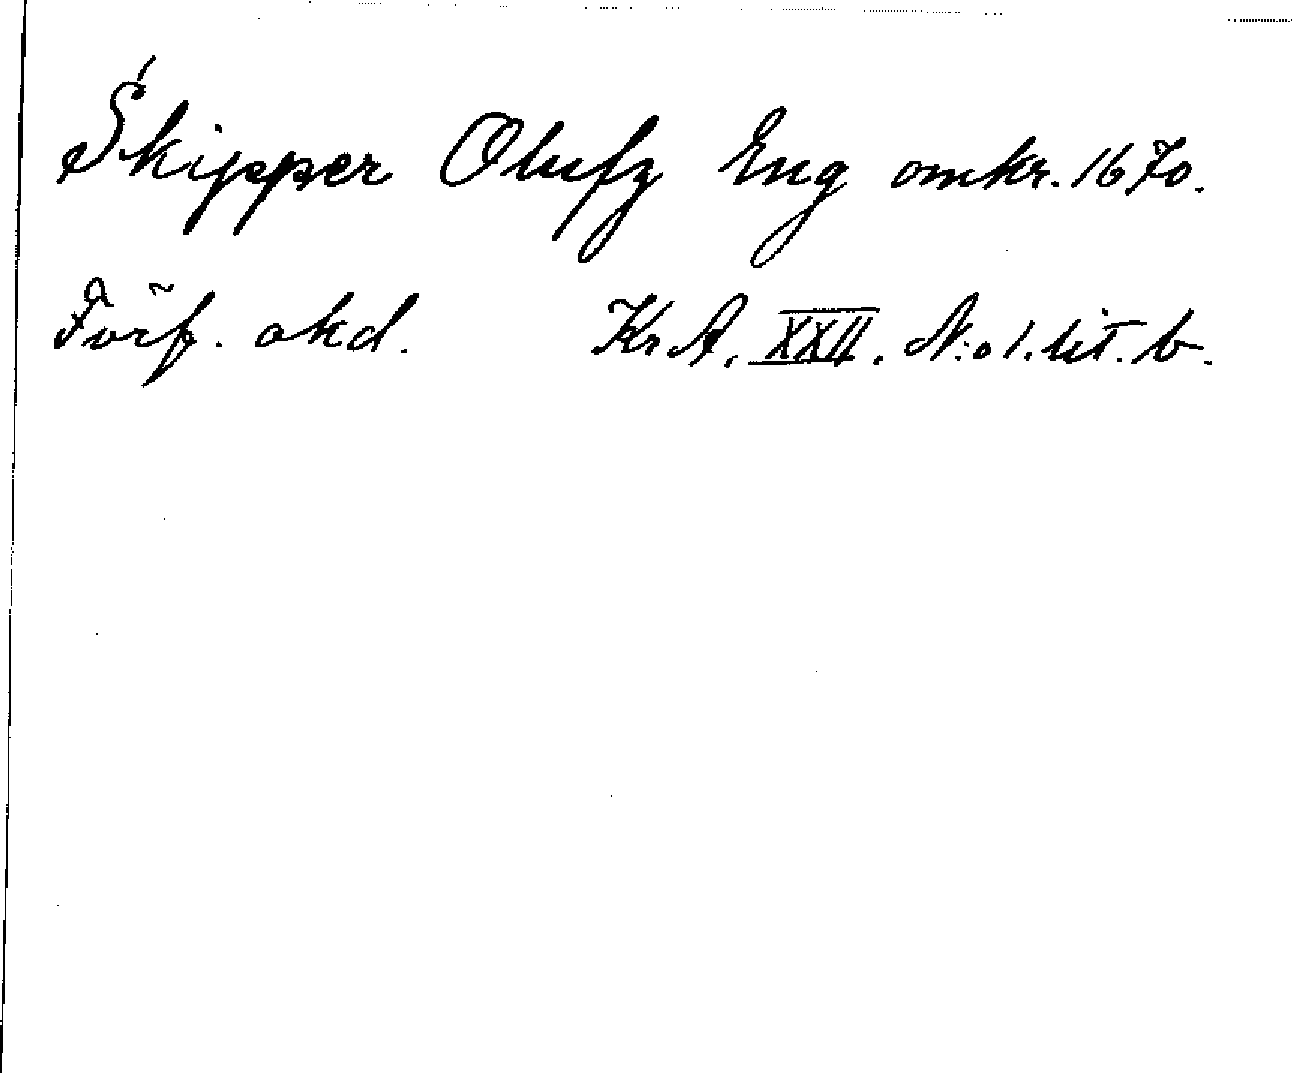 Skipper Olufz Eng omkr. 1670.
Förf. okd. Kr A. XXII. N:o 1. lit. b.